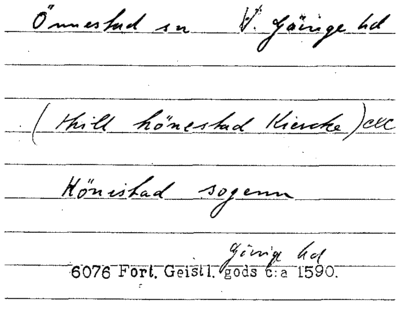 Önnestad sn V. Göinge hd
(thill hönestad Kiercke) etc
Hönistad sogenn
Göinge hd
6076 Fort. Geistl. gods c:a 1590.